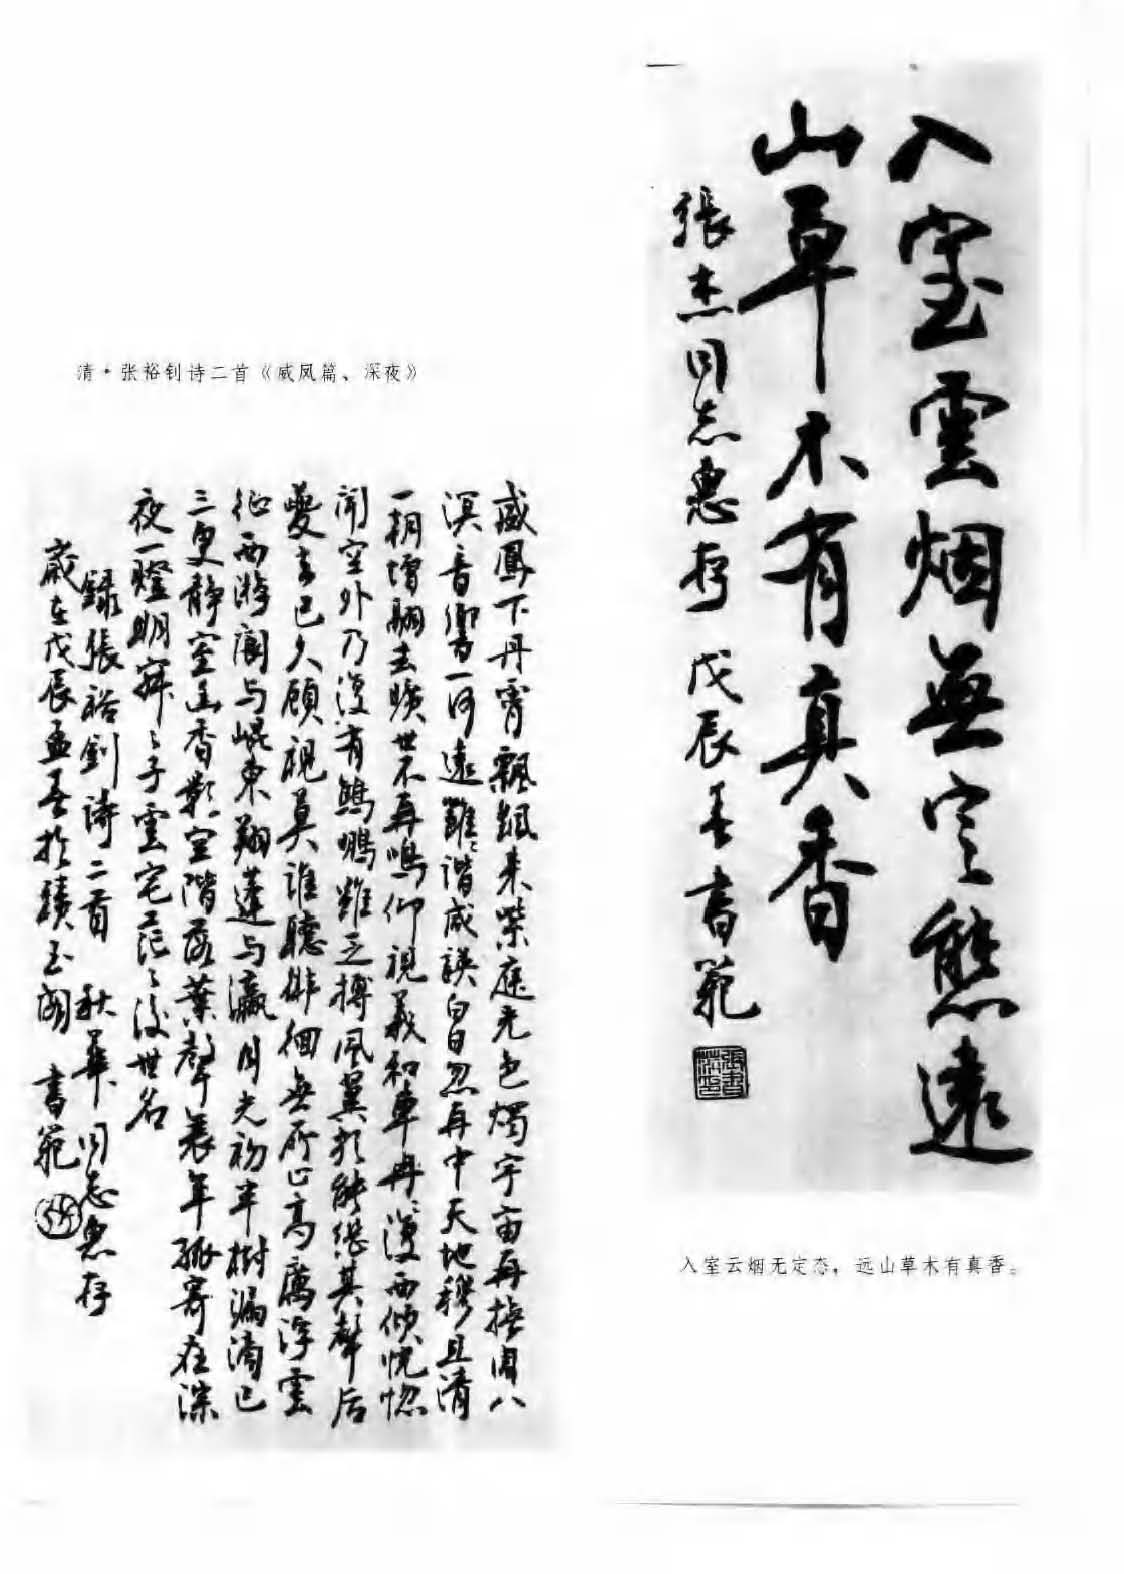 入室雲烟無定態遠
山草木有真香
張杰同志惠存 戊辰春書範
張書範印
入室云烟无定态，远山草木有真香。
清·张裕钊诗二首《威凤篇、深夜》
威鳳下丹霄飄飖来紫庭光色燭宇宙再撫周八
溟音響一何遠雝雝諧咸韺白日忽再中天地穆且清
一朝增翮去曠世不再鳴仰視羲和車冉冉復西傾恍惚
聞空外乃復有鷦鵬雖乏摶風翼能繼其聲后
夔去已久顧視莫誰聽徘徊無所止高厲浮雲
征西游閬与崐東翔蓬与瀛月光初半樹漏滴已
三更静室幽香影空階落葉聲年孤寄在深
夜一燈明寂〻子雲宅茫〻後世名
録張裕釗詩二首 秋華同志惠存
歲在戊辰孟春於玉閣 書範